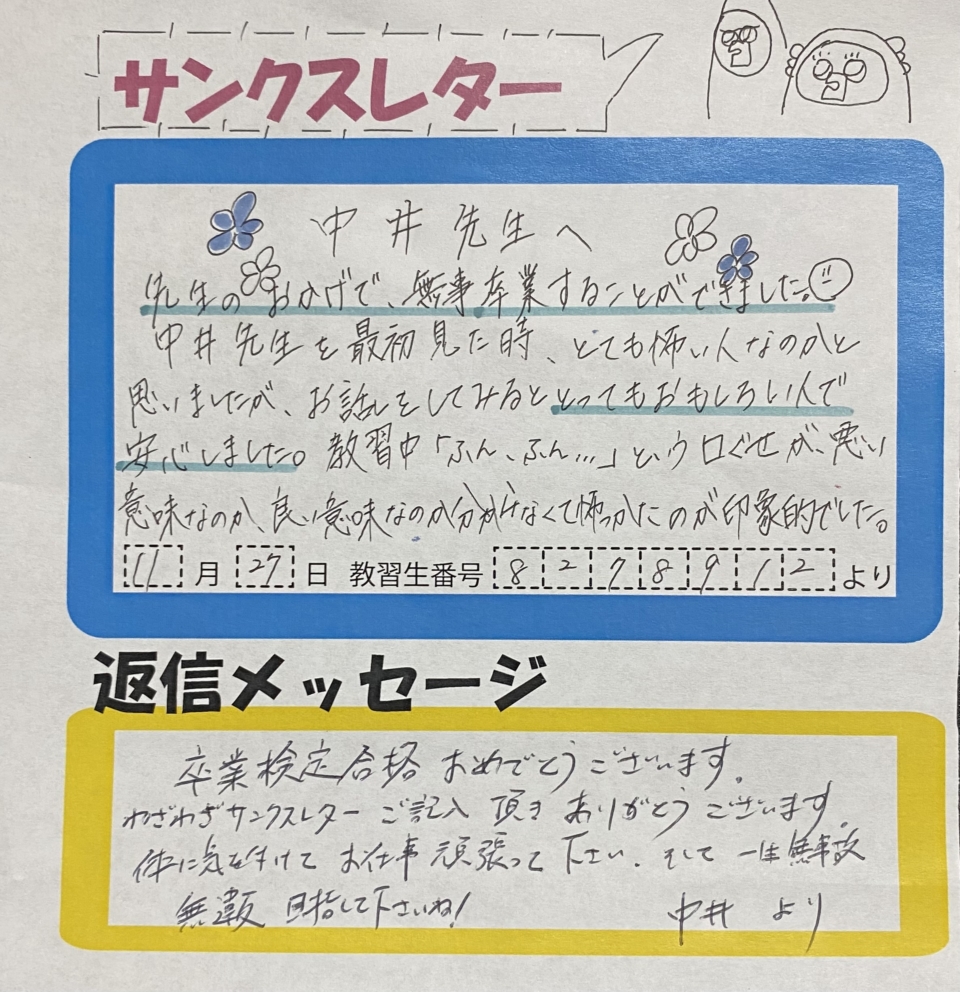 サンクスレター
中井先生へ
先生のおかげで、無事卒業することができました。
中井先生を最初見た時、とても怖い人なのかと
思いましたが、お話しをしてみるととってもおもしろい人で
安心しました。教習中「ふん、ふん…」という口ぐせが、悪い
意味なのか、良い意味なのか分からなくて怖かったのが印象的でした。
11月27日 教習生番号 8278912より
返信メッセージ
卒業検定合格おめでとうございます。
わざわざサンクスレターご記入頂きありがとうございます。
体に気を付けてお仕事頑張って下さい。そして一生無事故
無違反目指して下さいね!
中井より